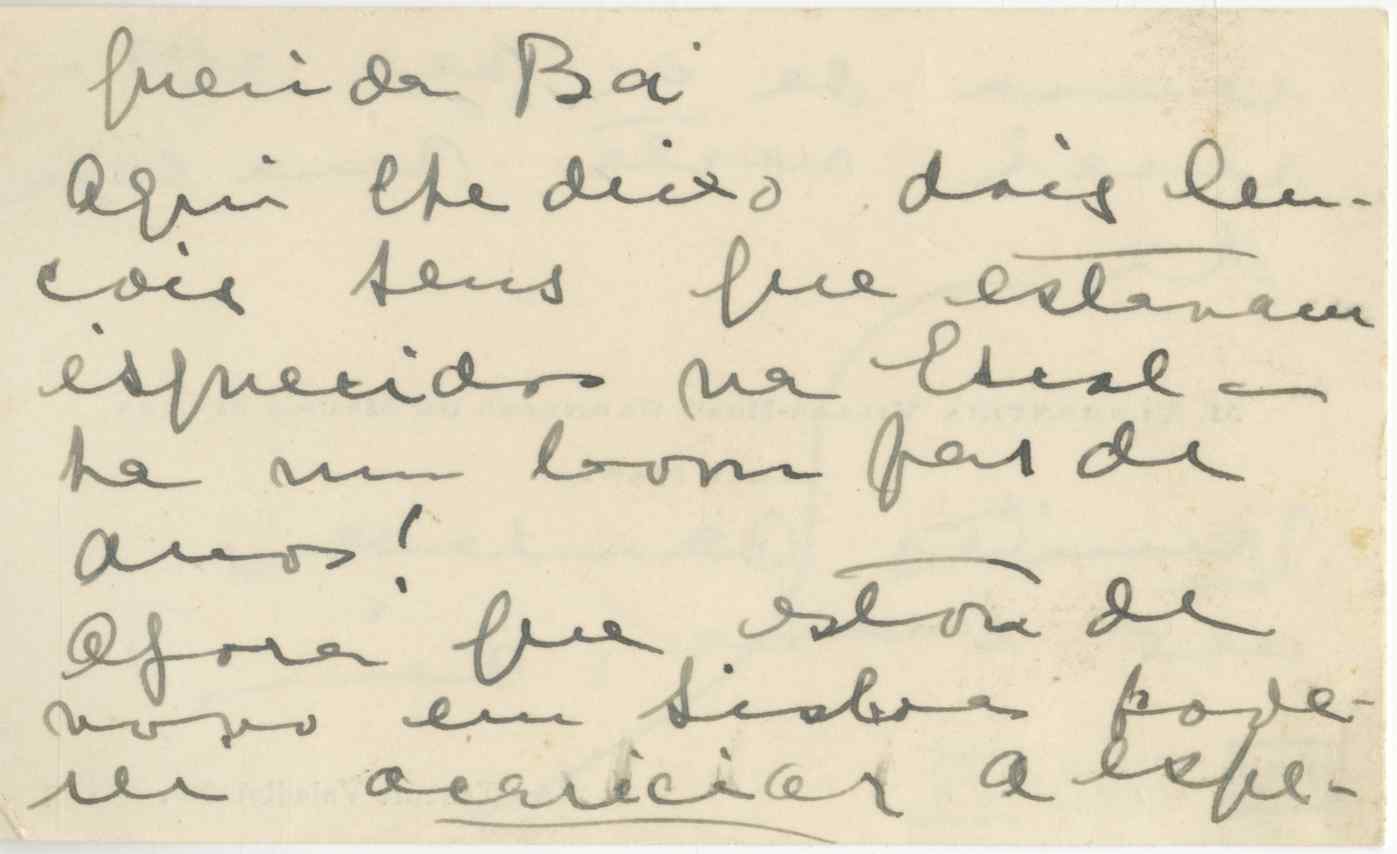 Querida Bá
Aqui lhe deixo dois len-
cois seus que estavam
esquecidos na Escal-
ha num bom par de
anos!
Agora que estou de
novo em Lisboa pode-
rei acariciar a espe-